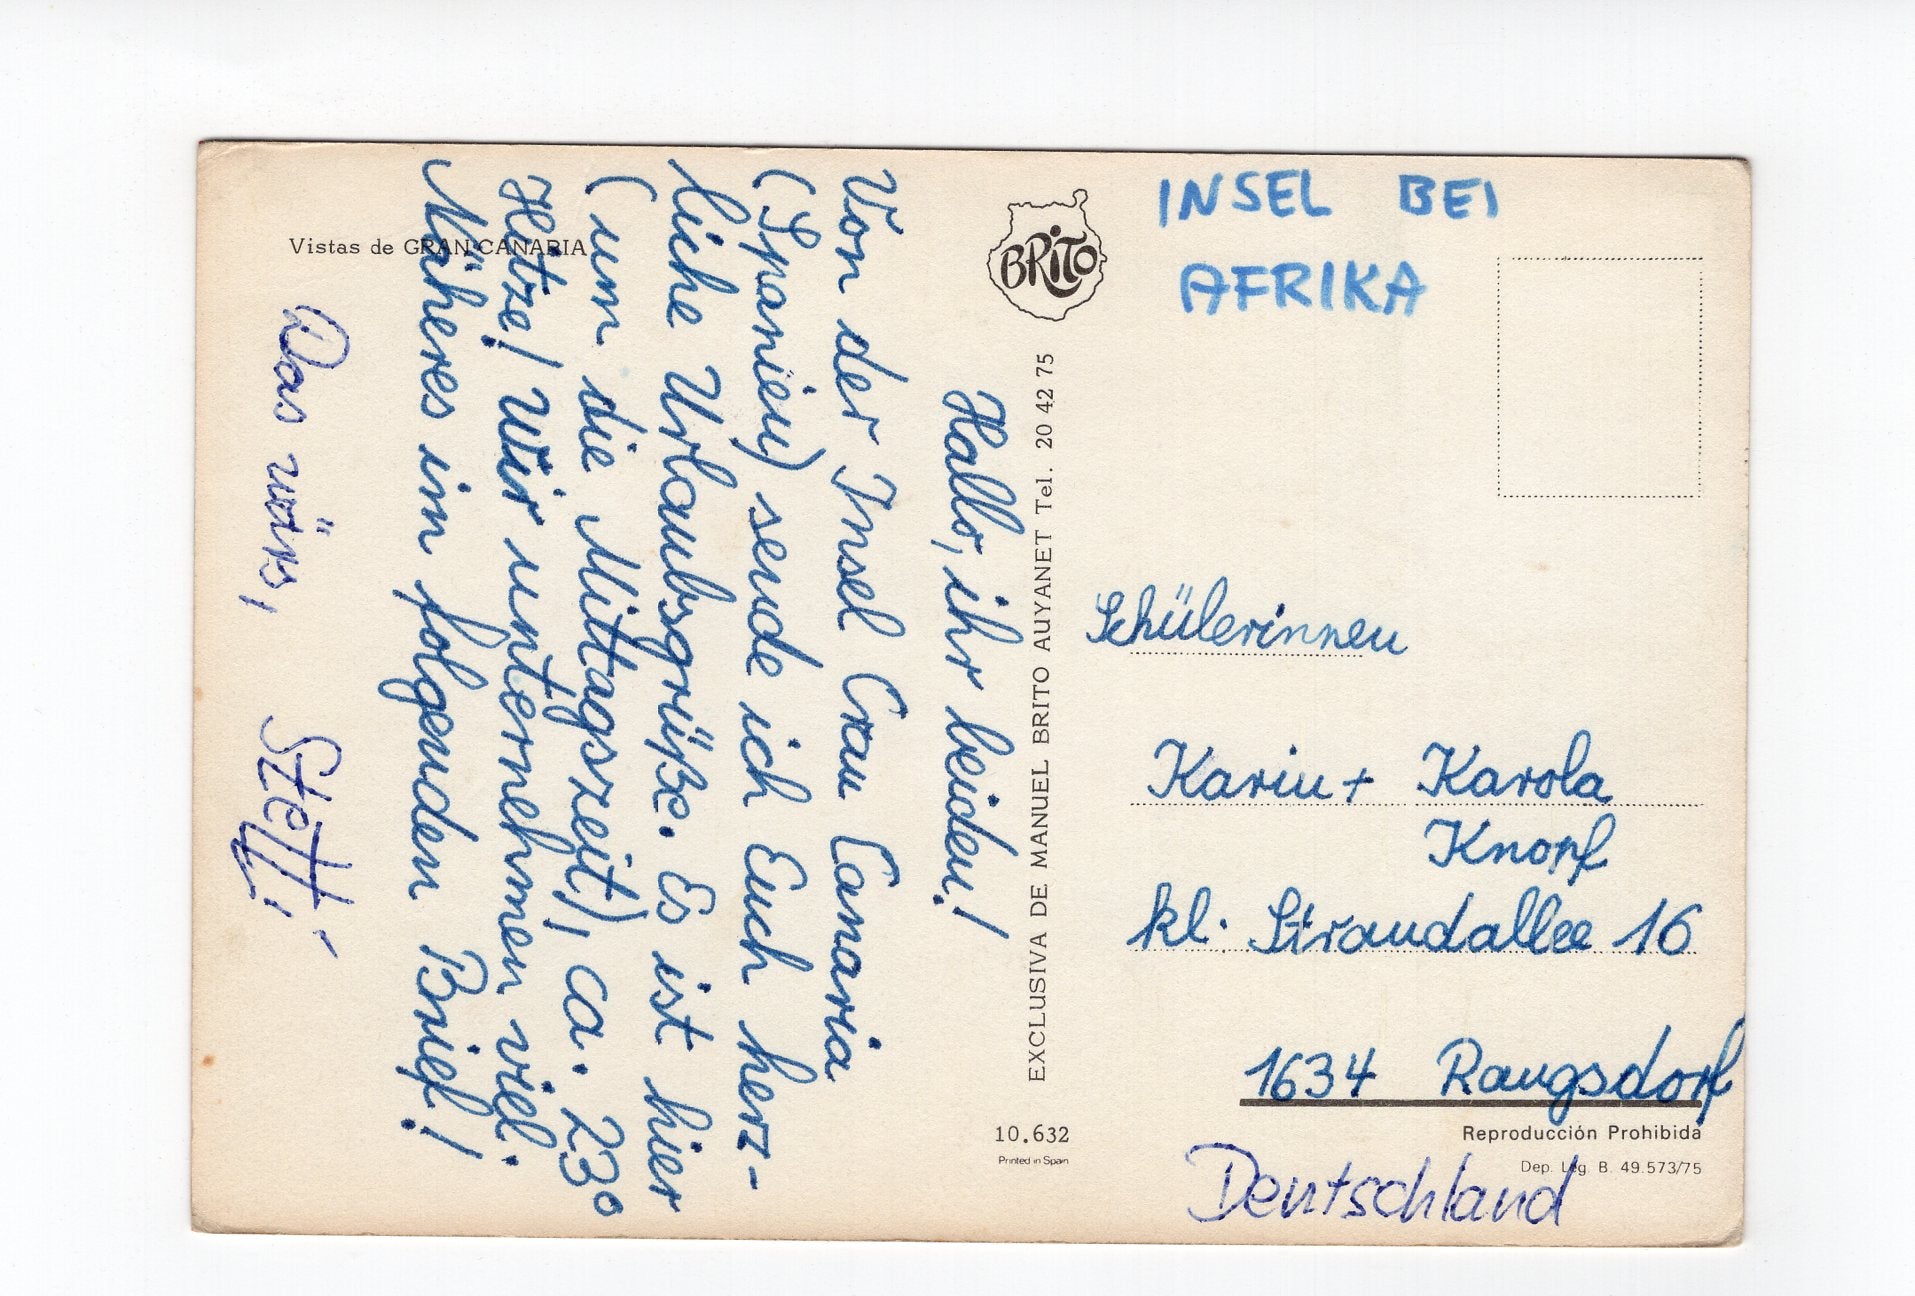 Vistas de GRAN CANARIA
Hallo, ihr beiden!
Von der Insel Gran Canaria
(Spanien) sende ich Euch herz-
liche Urlaubsgrüße. Es ist hier
(um die Mittagszeit), ca. 23°
Hitze! Wir unternehmen viel.
Näheres im folgenden Brief!
Das wärs,
Steffi -
BRITO
EXCLUSIVA DE MANUEL BRITO AUYANET Tel. 20 42 75
10.632
Printed in Spain
INSEL BEI
AFRIKA
Schülerinnen
Karin + Karola
Knopf
kl. Strandallee 16
1634 Rangsdorf
Reproducción Prohibida
Dep. Leg. B. 49.573/75
Deutschland